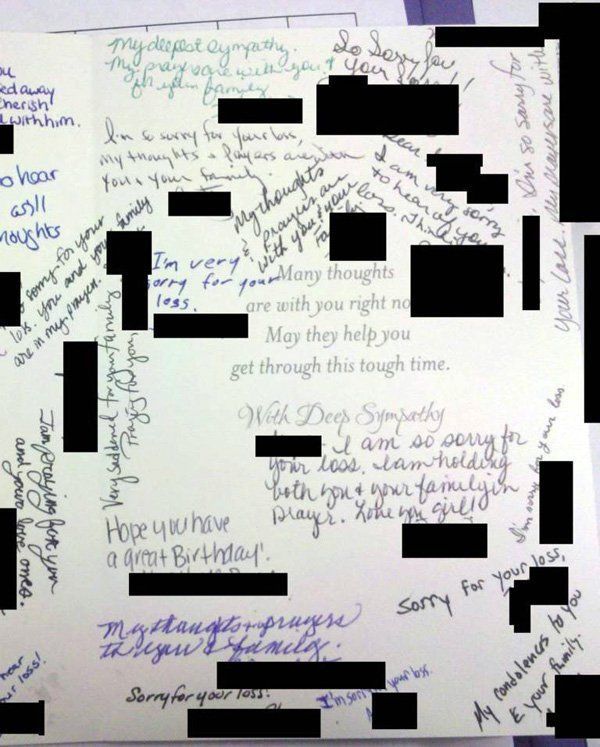 My deepest sympathy.
My prayers are with you &
your family
So Sorry for
your
I'm so sorry for your loss,
My thoughts & Prayers are with
you & your family.
I am very sorry
to hear of your
loss.
I'm so sorry for
your loss. My prayers are with
My thoughts
& prayers are
with you & your
family
ou
ed away
herish
with him.
o hear
as I'll
noughts
so sorry for your
loss. you and your family
are in my prayer.
I'm very
sorry for your
loss.
Many thoughts
are with you right no
May they help you
get through this tough time.
With Deep Sympathy
I am so sorry for
your loss. I am holding
both you & your family in
prayer. Love you girl!
Very saddened for your family
Praying for you,
I am praying for you
and your love ones.
I'm sorry for your loss
Hope you have
a great Birthday!
Sorry for your loss,
My thoughts & prayers
to you & family.
hear
ur loss!
Sorry for your loss.
I'm sorry your loss.
My condolences to you
& your family.